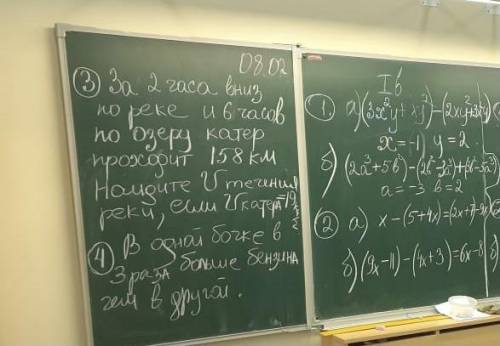 08.02
③ За 2 часа вниз
по реке и 6 часов
по озеру катер
проходит 158 км
Найдите V течения
реки, если V катера =19
④ В одной бочке в
3 раза больше бензина
чем в другой.
I в
①. а) (3x²y + xy²) - (2xy²
x = -1, y = 2
б) (2a³+5b³)-(2b³
a = -3 b = 2
② а) x-(5+4x)=(2x+7)
б) (9x-11)-(4x+3)=6x-8